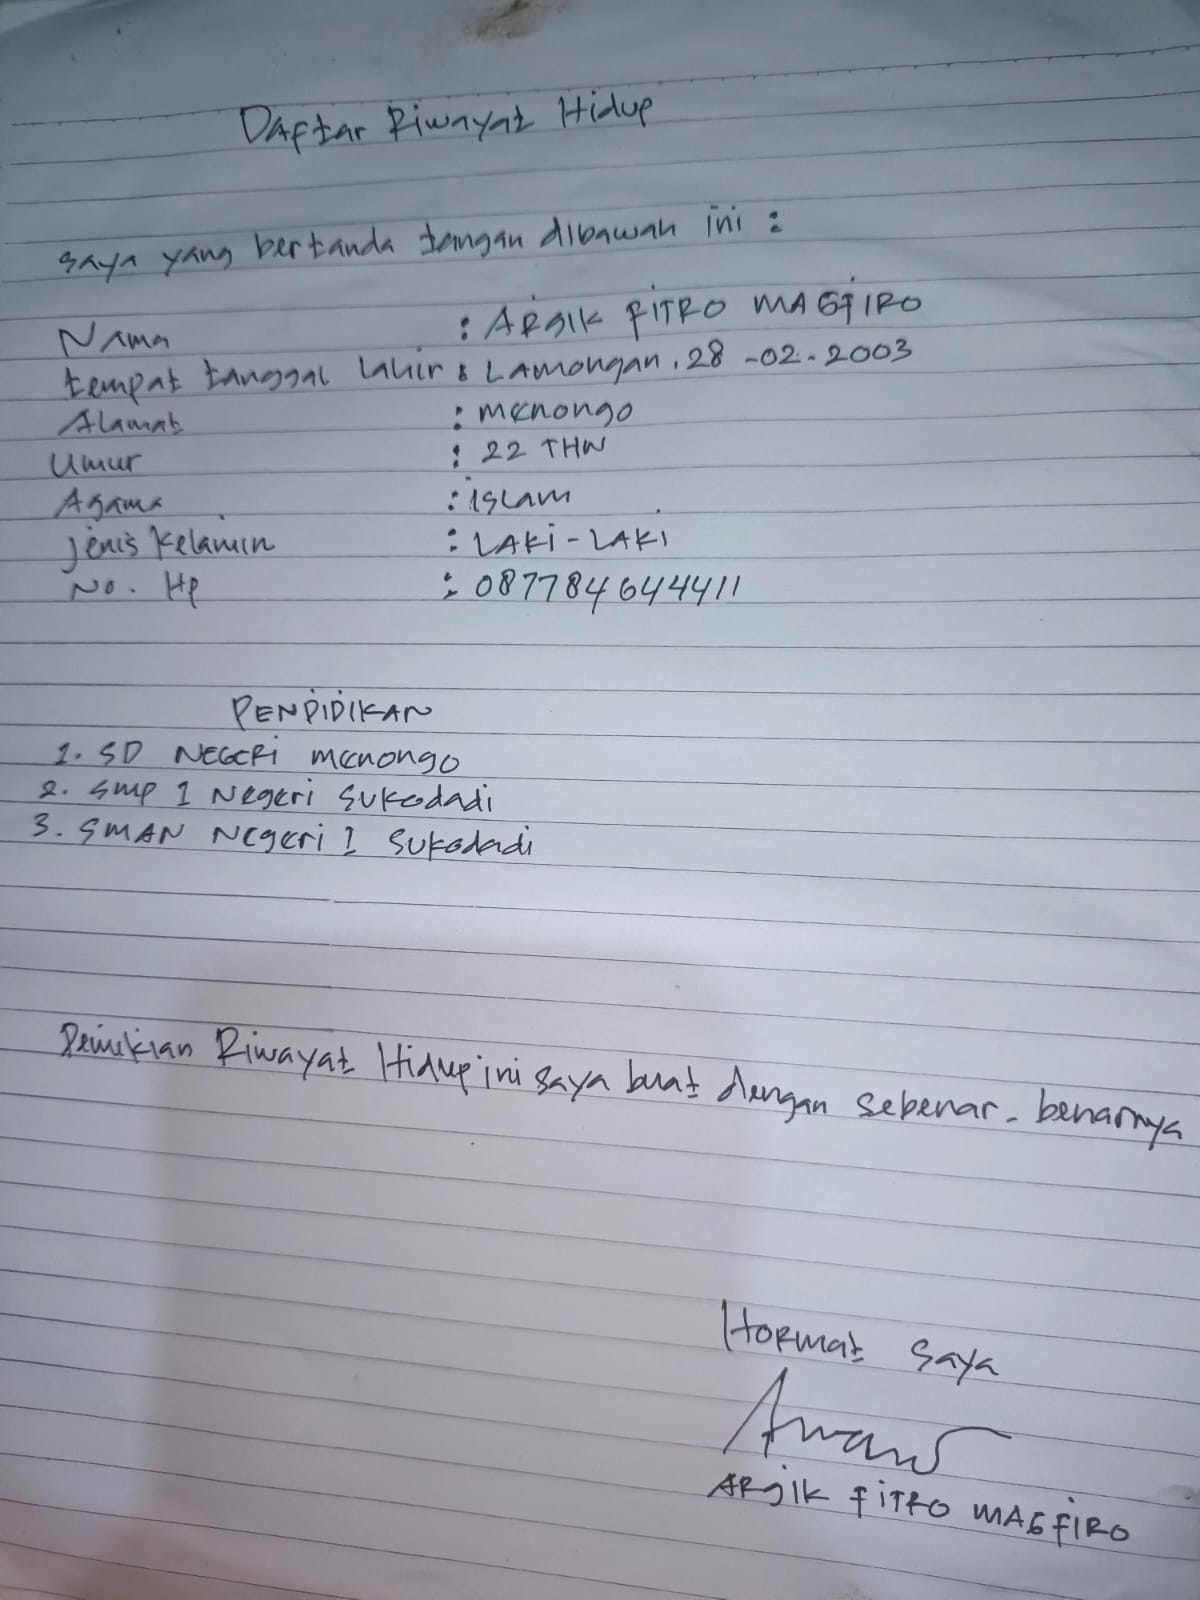 Daftar Riwayat Hidup
Saya yang bertanda tangan dibawah ini :
Nama : ARJIK FITRO MAGFIRO
tempat tanggal lahir : Lamongan, 28 -02-2003
Alamat : menongo
Umur : 22 THN
Agama : islam
jenis kelamin : LAKi-LAKi
No. Hp : 087784644411
PENDIDIKAN
1. SD NEGERi menongo
2. smp 1 Negeri Sukodadi
3. SMAN Negeri 1 Sukodadi
Demikian Riwayat Hidup ini saya buat dengan sebenar-benarnya
Hormat saya
ARJIK FITRO MAGFIRO